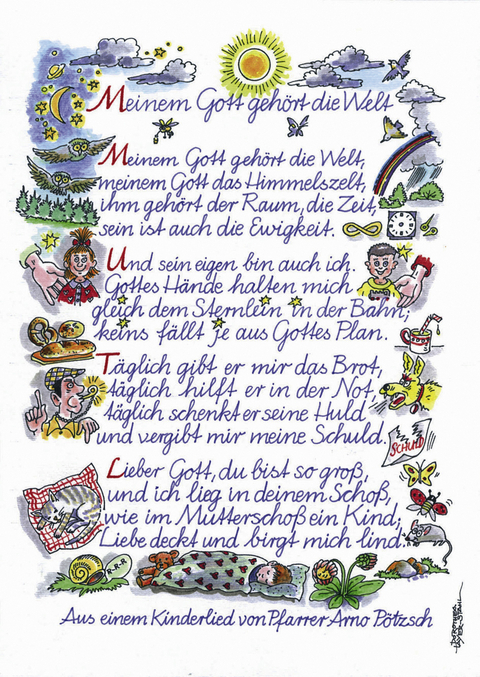 Meinem Gott gehört die Welt
Meinem Gott gehört die Welt,
meinem Gott das Himmelszelt,
ihm gehört der Raum, die Zeit,
sein ist auch die Ewigkeit.
Und sein eigen bin auch ich.
Gottes Hände halten mich
gleich dem Sternlein in der Bahn;
keins fällt je aus Gottes Plan.
Täglich gibt er mir das Brot,
täglich hilft er in der Not,
täglich schenkt er seine Huld
und vergibt mir meine Schuld.
SCHULD
Lieber Gott, du bist so groß,
und ich lieg in deinem Schoß,
wie im Mutterschoß ein Kind;
Liebe deckt und birgt mich lind.
R-R-R
Aus einem Kinderlied von Pfarrer Arno Pötzsch